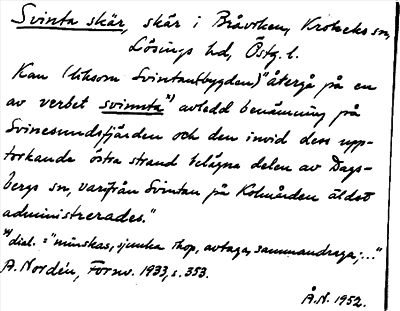 Svinta skär, skär i Bråviken, Krokeks sn,
Lösings hd, Östg. l.
Kan (liksom Svintan(bygden)) "återgå på en
av verbet svinnta*) avledd benämning på
Svinesundsfjärden och den invid dess upp-
torkande östra strand belägna delen av Dags-
bergs sn, varifrån Svintan på Kolmården äldst
administrerades."
*) dial. = "minskas, sjunka ihop, avtaga, sammandraga;..."
A. Nordén, Fornv. 1933, s. 353.
Å.N. 1952.